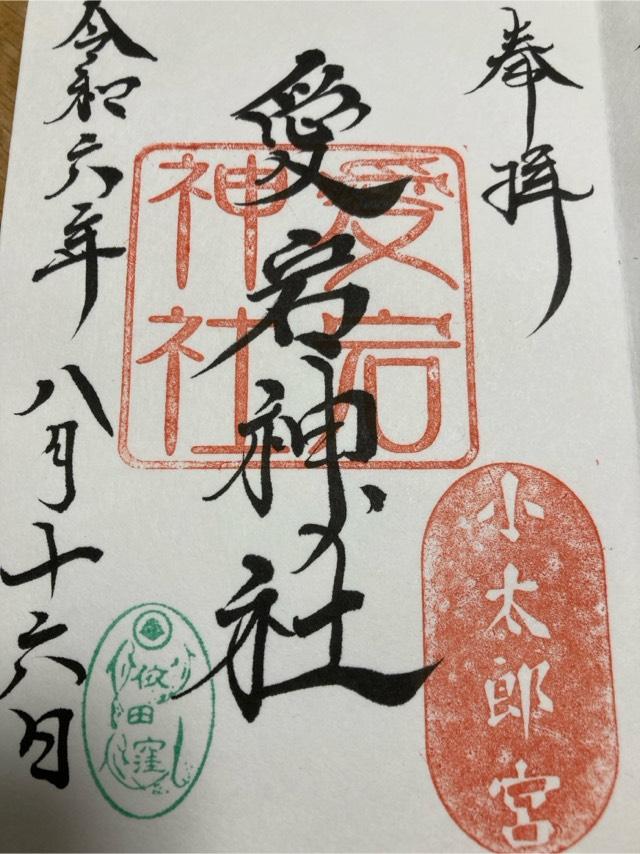 奉拝
愛宕神社
愛宕
神社
小太郎宮
令和六年 八月十六日
田窪